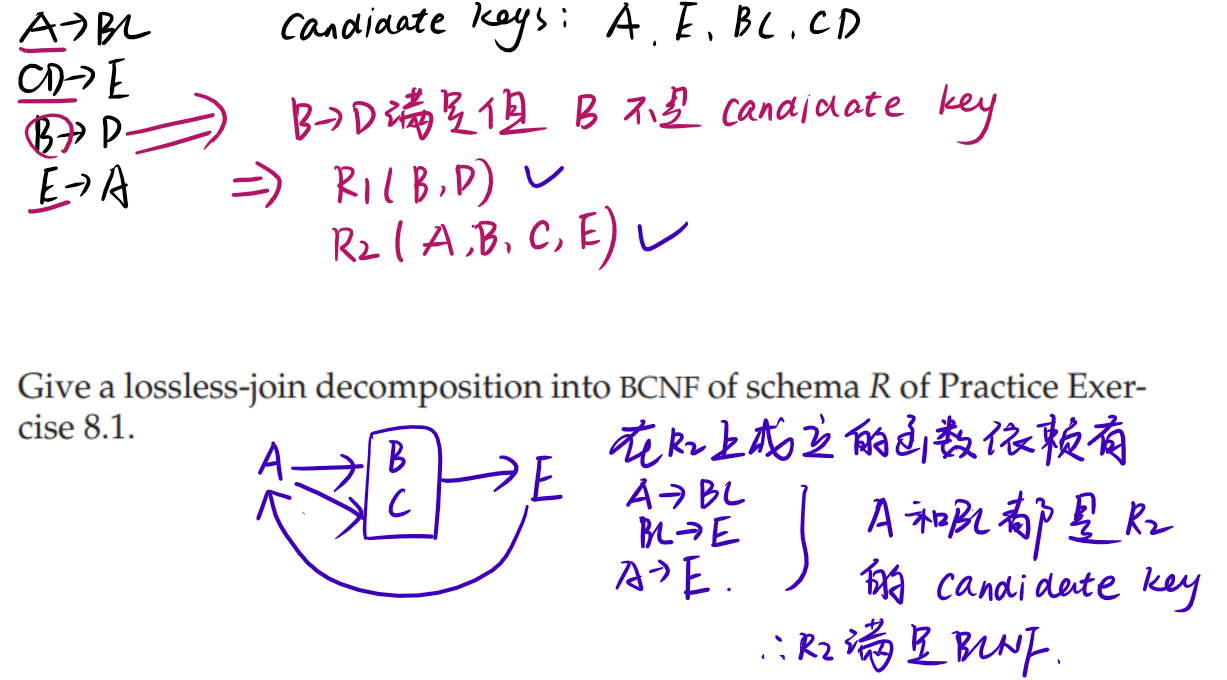 A→BC
candidate keys: A、E、BC、CD
CD→E
B→D ⟹ B→D满足但 B 不是 candidate key
E→A
⇒ R1(B,D) ✓
R2(A,B,C,E) ✓
Give a lossless-join decomposition into BCNF of schema R of Practice Exer-
cise 8.1.
A B C E
在R2上成立的函数依赖有
A→BC
BC→E
A→E.
A和BC都是R2
的 candidate key
∴R2满足BCNF.